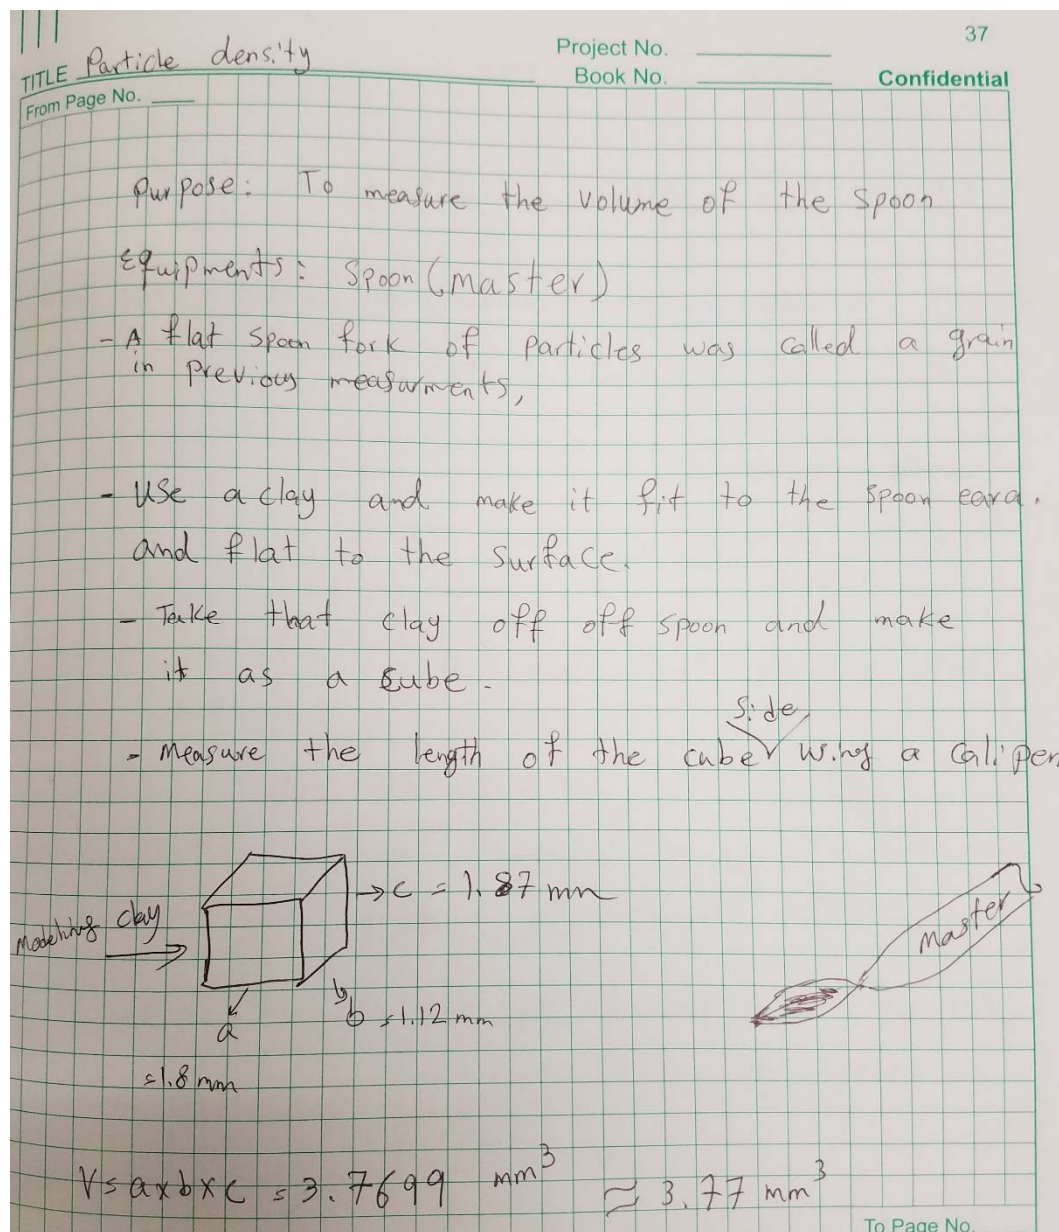 37
Project No.
TITLE Particle density
Book No.
Confidential
From Page No.
Purpose: To measure the volume of the spoon
Equipments: Spoon (master)
- A flat spoon fork of particles was called a grain
in previous measurments,
- Use a clay and make it fit to the spoon
and flat to the surface.
- Take that clay off off spoon and make
it as a cube.
side
- Measure the length of the cube using a caliper
→ c = 1.87 mm
Modeling clay
master
a
b = 1.12 mm
= 1.8 mm
V = a x b x c = 3.7699 mm³ ≈ 3.77 mm³
To Page No.